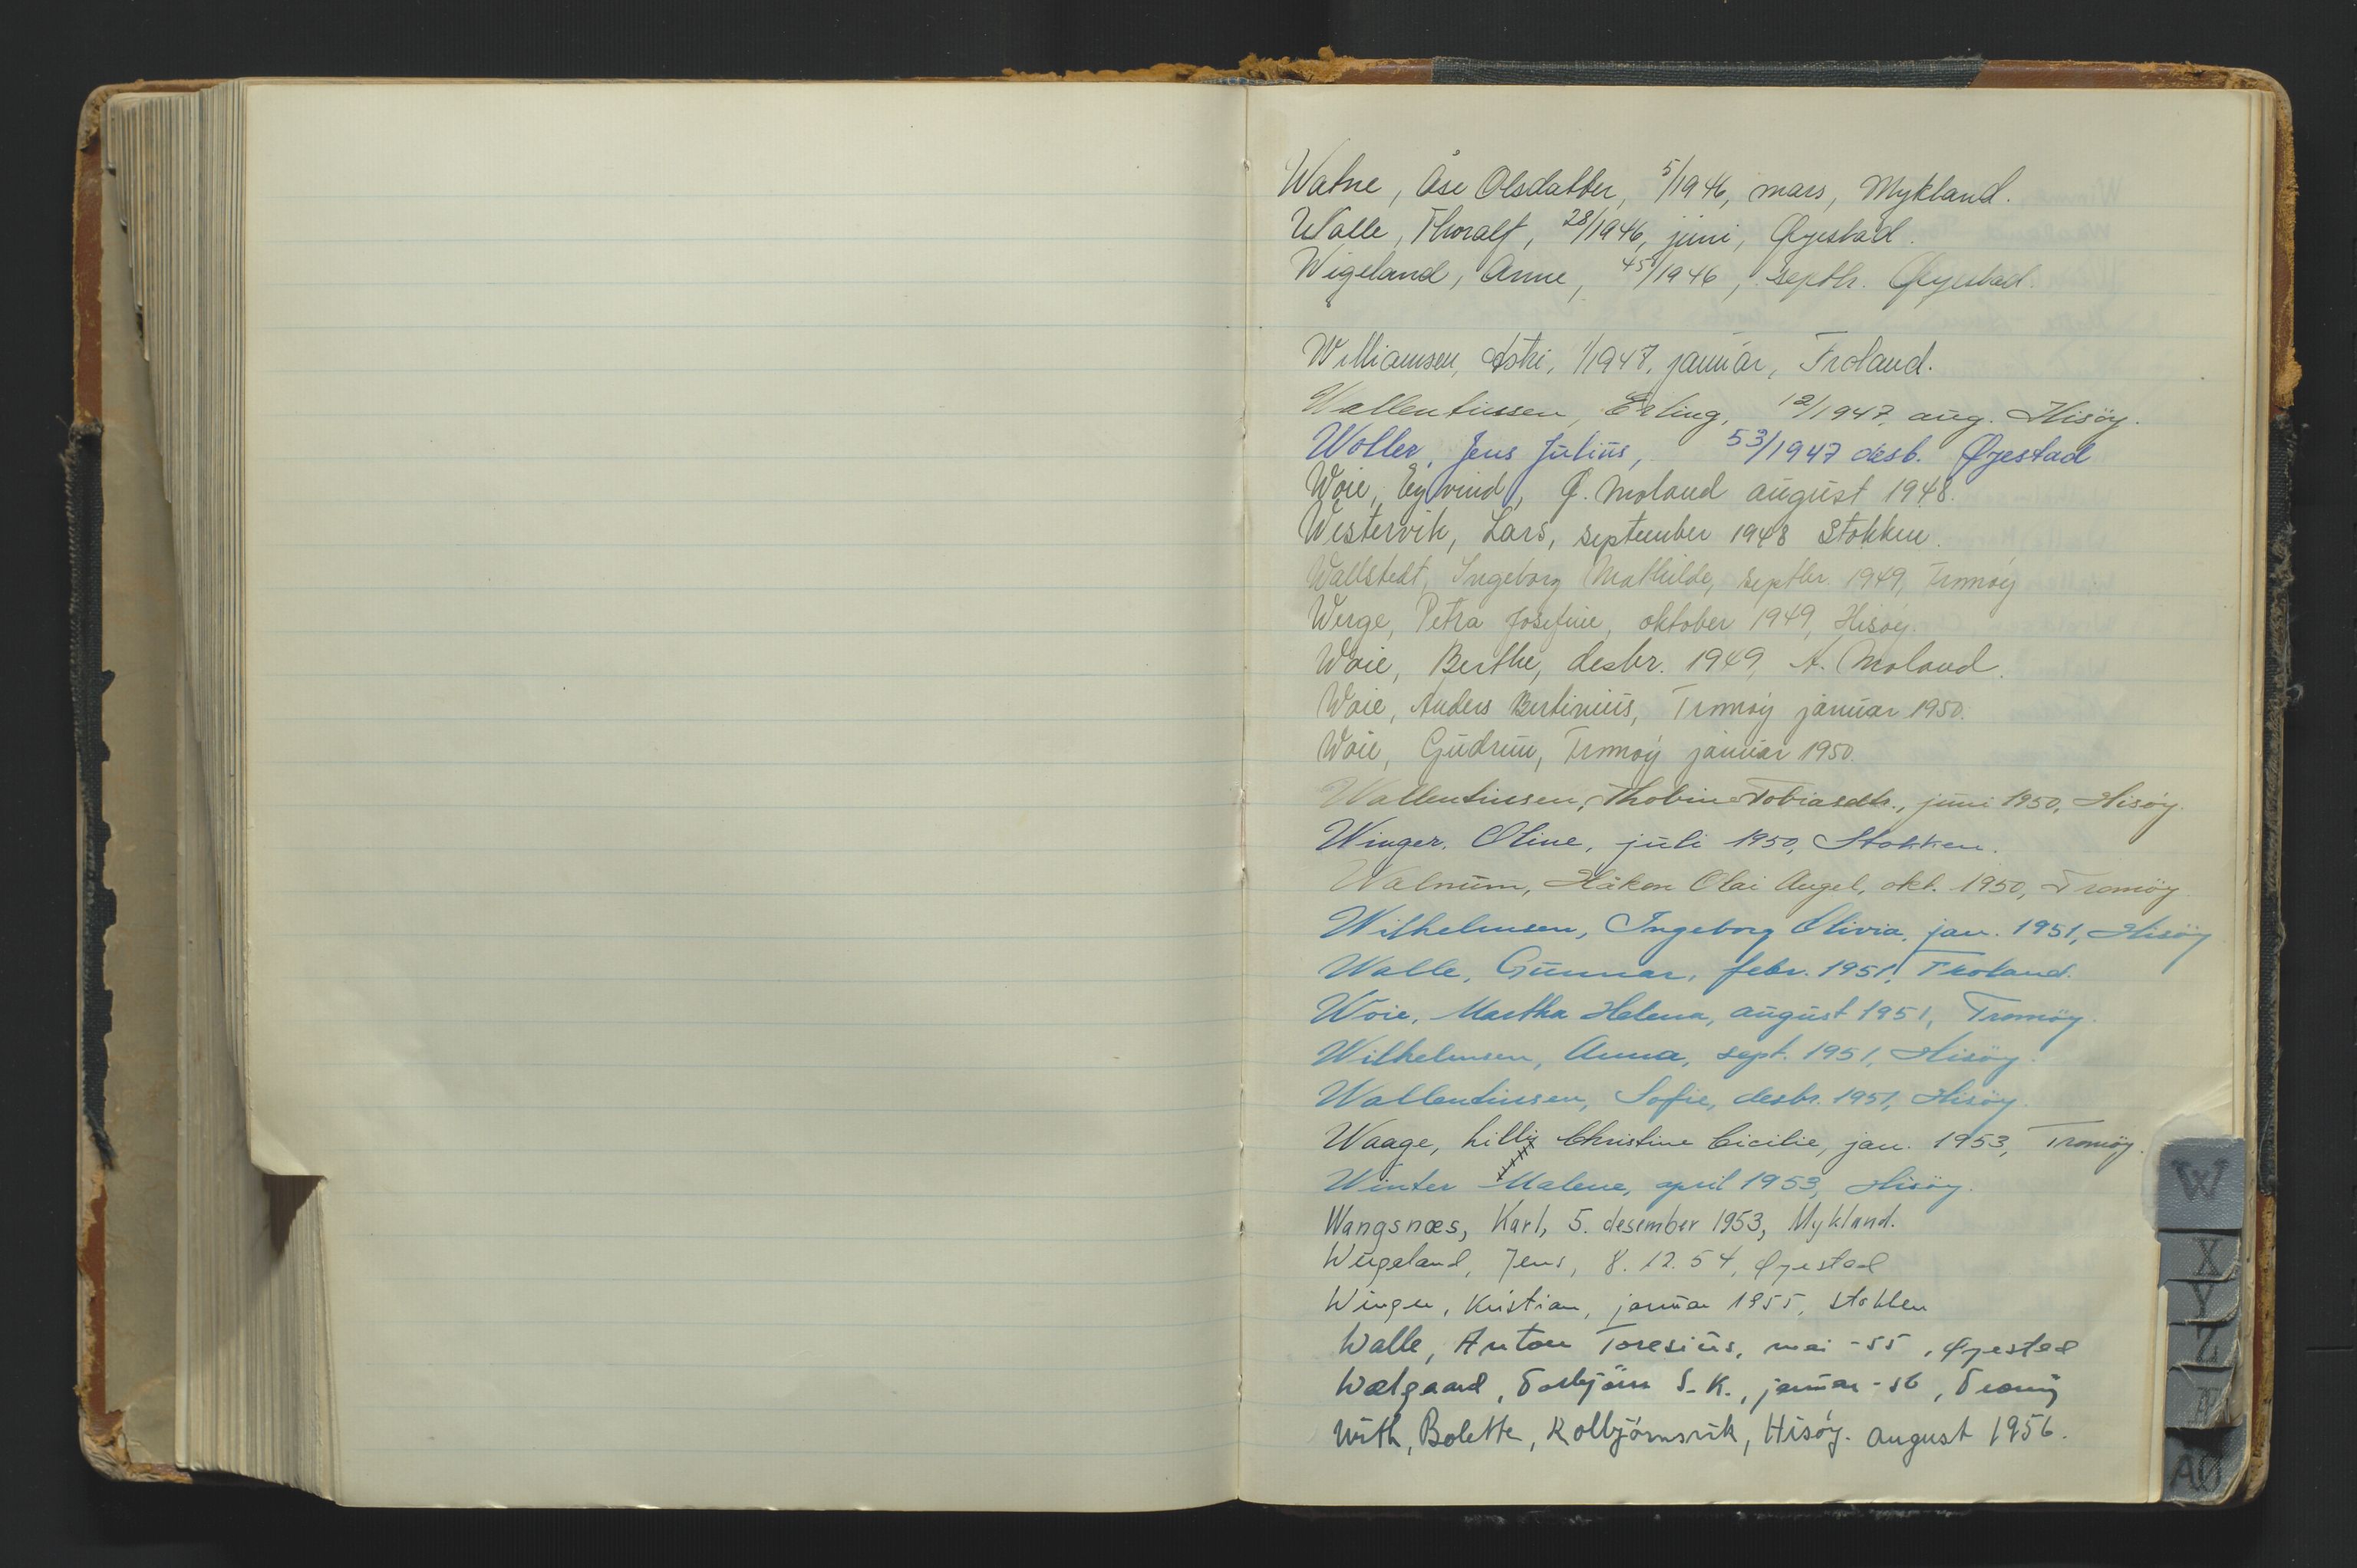 Watne, Åse Olsdatter, 5/1946, mars, Mykland.
Walle, Thoralf, 28/1946, juni, Øyestad.
Wigeland, Anne, 45/1946, septbr. Øyestad.
Williamsen, Astri, 1/1947, januar, Froland.
Wallentinsen, Erling, 12/1947, aug. Hisöy.
Woller, Jens Julius, 53/1947 desb. Øyestad
Woie, Eyvind, Ø. Moland august 1948.
Westervik, Lars, september 1948 Stokken.
Wallstedt, Ingeborg Mathilde, septbr. 1949, Tromöy
Werge, Petra Josefine, oktober 1949, Hisöy.
Woie, Berthe, desbr. 1949, A. Moland.
Woie, Anders Bertinius, Tromöy januar 1950.
Woie, Gudrun, Tromöy januar 1950.
Wallentinsen, Thobine Tobiasdtr., juni 1950, Hisöy.
Winger, Oline, juli 1950, Stokken.
Walnum, Håkon Olai Angel, okt. 1950, Tromöy
Wilhelmsen, Ingeborg Olivia, jan. 1951, Hisöy
Walle, Gunnar, febr. 1951, Froland.
Woie, Martha Helena, august 1951, Tromöy.
Wilhelmsen, Anna, sept. 1951, Hisöy.
Wallentinsen, Sofie, desbr. 1951, Hisöy.
Waage, Lilly Christine Cicilie, jan. 1953, Tromöy.
Winter Malene, april 1953, Hisöy.
Wangsnæs, Karl, 5. desember 1953, Mykland.
Jens, 8.12.54, Øyestad
Winger, Kristian, januar 1955, Stokken
Walle, Anton Toresius, mai -55, Øyestad
Walgaard, Torbjörn S.K., januar -56, Tromöy
With, Bolette, Kolbjörnsvik, Hisöy. august 1956.
W
X
Y
Z
Æ
AØ